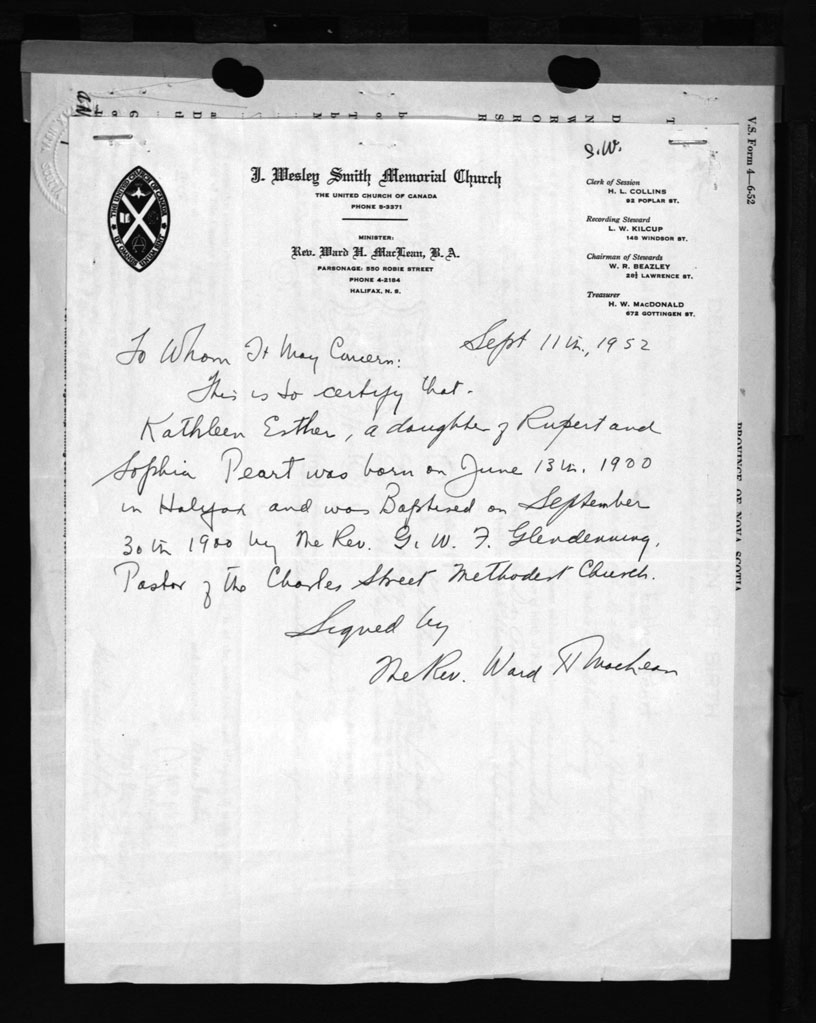 V.S. Form 4—6-52
S.W.
J. Wesley Smith Memorial Church
THE UNITED CHURCH OF CANADA
PHONE 5-3371
MINISTER:
Rev. Ward H. MacLean, B.A.
PARSONAGE: 550 ROBIE STREET
PHONE 4-2184
HALIFAX, N. S.
Clerk of Session
H. L. COLLINS
92 POPLAR ST.
Recording Steward
L. W. KILCUP
140 WINDSOR ST.
Chairman of Stewards
W. R. BEAZLEY
28½ LAWRENCE ST.
Treasurer
H. W. MacDONALD
672 GOTTINGEN ST.
Sept 11th, 1952
To Whom It May Concern:
This is to certify that
Kathleen Esther, a daughter of Rupert and
Sophia Peart was born on June 13th. 1900
in Halifax and was Baptised on September
30th 1900 by The Rev. G. W. F. Glendenning,
Pastor of the Charles Street Methodist Church.
Signed by
The Rev. Ward H MacLean
PROVINCE OF NOVA SCOTIA